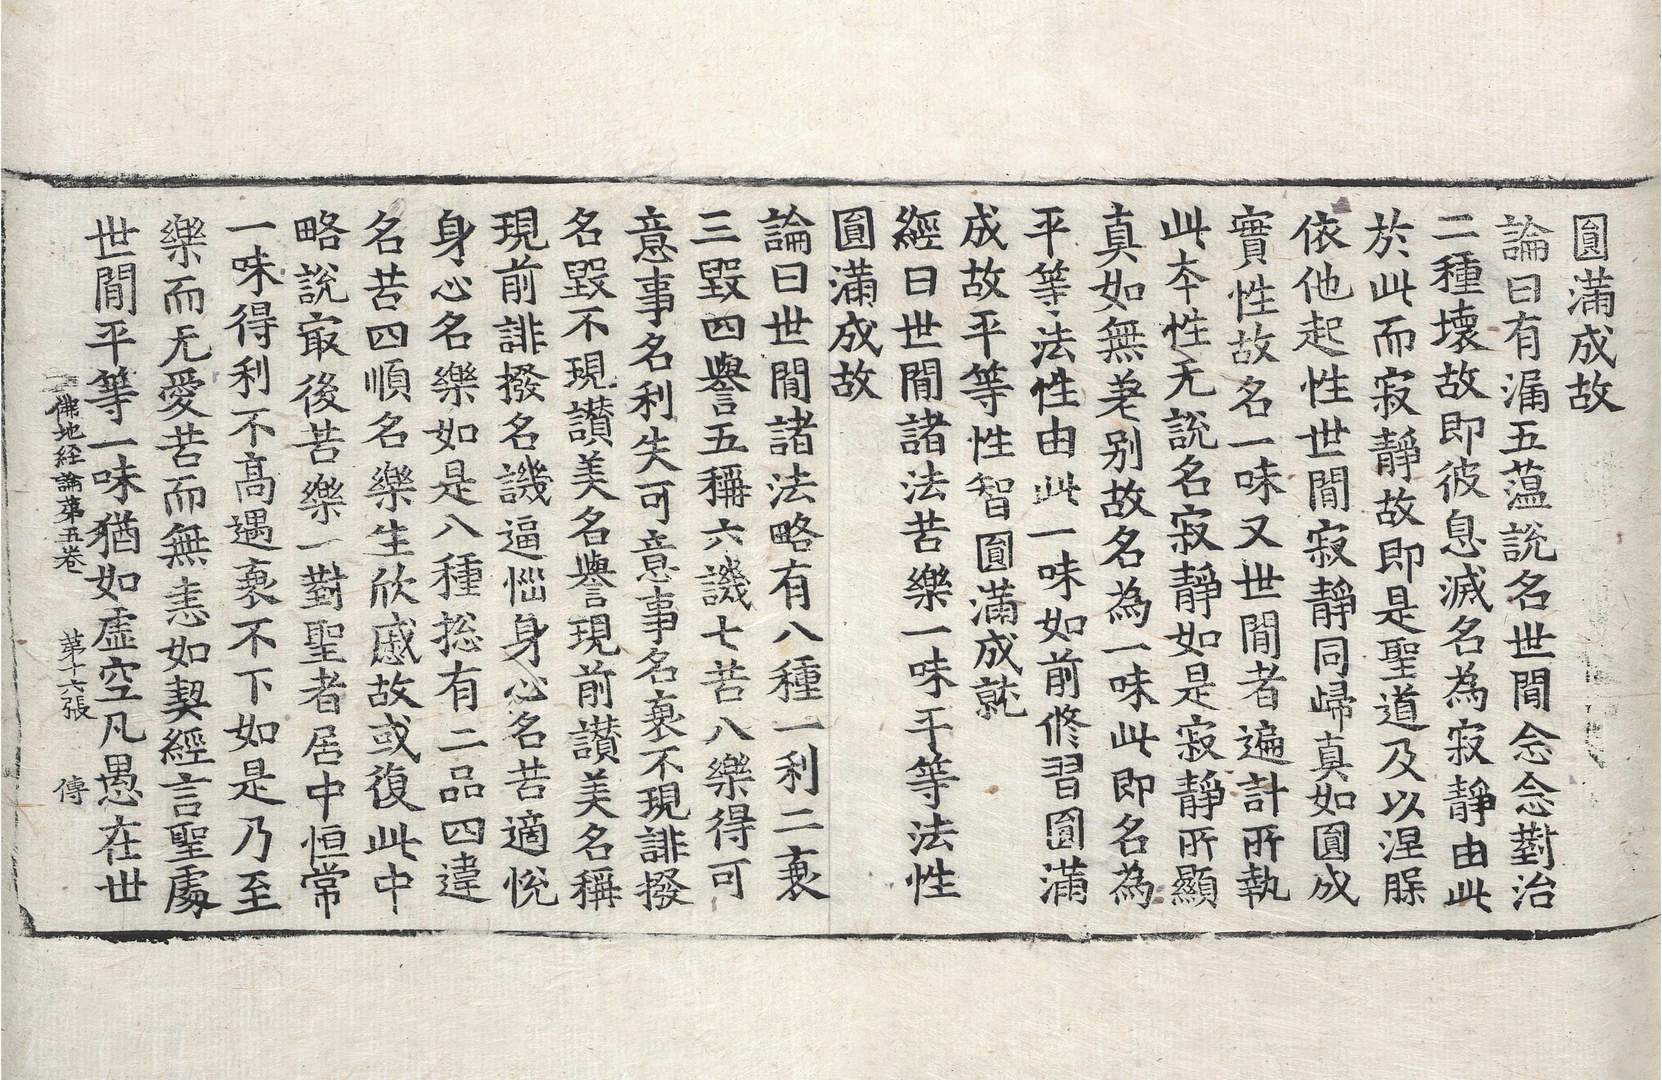 圓滿成故
論曰有漏五薀說名世閒念念對治
二種壞故即彼息滅名為寂靜由此
於此而寂靜故即是聖道及以涅脵
依他起性世閒寂靜同歸真如圓成
實性故名一味又世閒者遍計所執
此本性无說名寂靜如是寂靜所顯
真如無差别故名為一味此即名為
平等法性由此一味如前修習圓滿
成故平等性智圓滿成就
經曰世閒諸法苦樂一味平等法性
圓滿成故
論曰世閒諸法略有八種一利二衰
三毀四譽五稱六譏七苦八樂得可
意事名利失可意事名衰不現誹撥
名毀不現讃美名譽現前讃美名稱
現前誹撥名譏逼惱身心名苦適悅
身心名樂如是八種惣有二品四違
名苦四順名樂生欣慼故或復此中
略說㝡後苦樂一對聖者居中恒常
一味得利不髙遇衰不下如是乃至
樂而无愛苦而無恚如契經言聖處
世閒平等一味猶如虛空凡愚在世
佛地経論苐五卷 苐十六張 傳